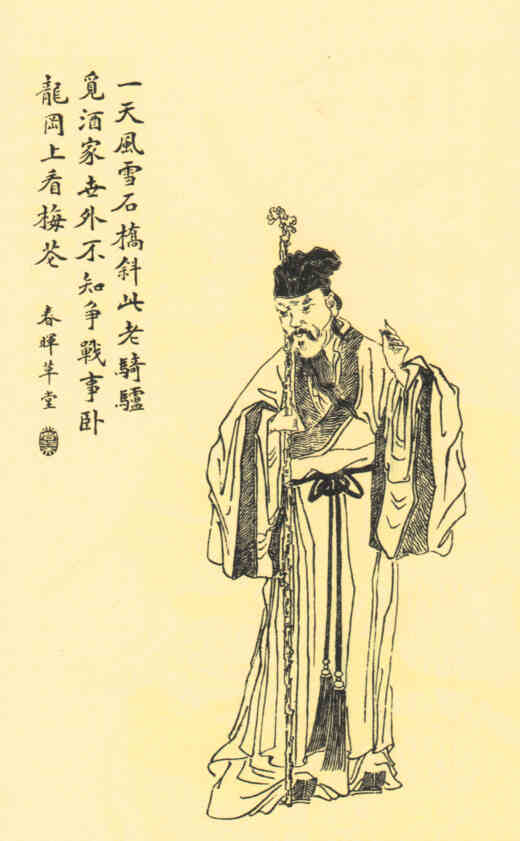 一天風雪石橋斜此老騎驢
覓酒家世外不知爭戰事臥
龍岡上看梅花
春暉草堂